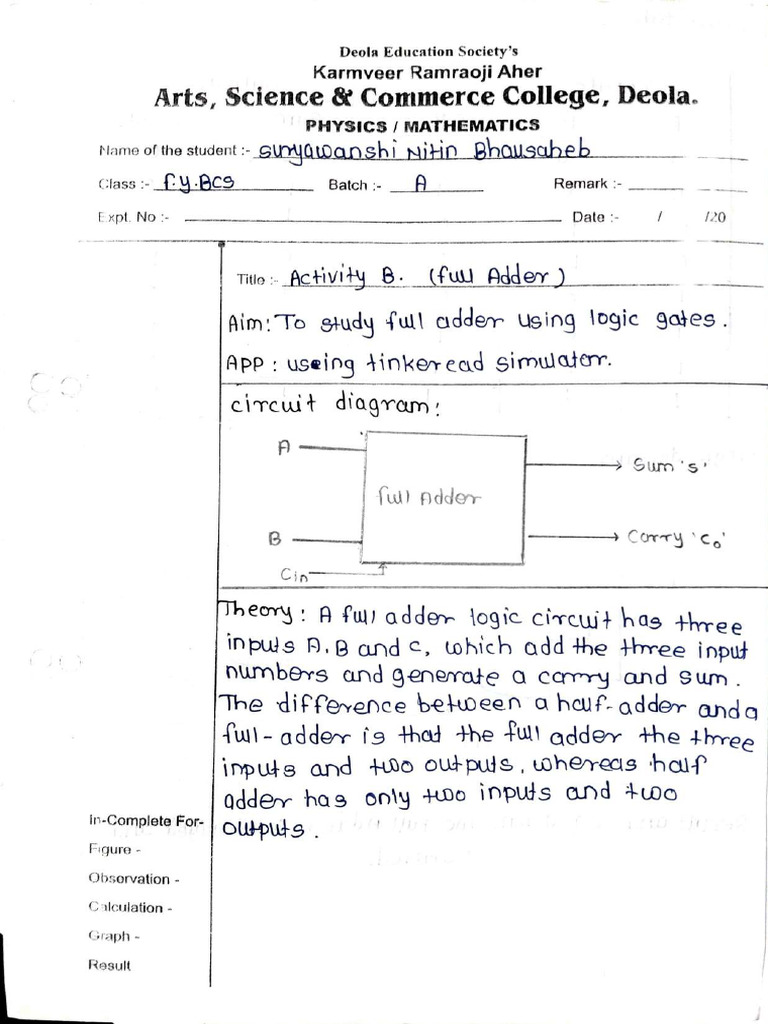 Deola Education Society's
Karmveer Ramraoji Aher
Arts, Science & Commerce College, Deola.
PHYSICS / MATHEMATICS
Name of the student :- Suryawanshi Nitin Bhausaheb
Class :- F.Y.BCS Batch :- A Remark :-
Expt. No :- Date :- / /20
Title :- Activity B. (full Adder)
Aim: To study full adder using logic gates.
App : useing tinkeread simulator.
circuit diagram:
A
Sum 's'
full Adder
B
Carry 'C₀'
Cin
Theory : A full adder logic circuit has three
inputs A, B and C, which add the three input
numbers and generate a carry and sum.
The difference between a half-adder and a
full-adder is that the full adder the three
inputs and two outputs, whereas half
adder has only two inputs and two
outputs.
In-Complete For-
Figure -
Observation -
Calculation -
Graph -
Result